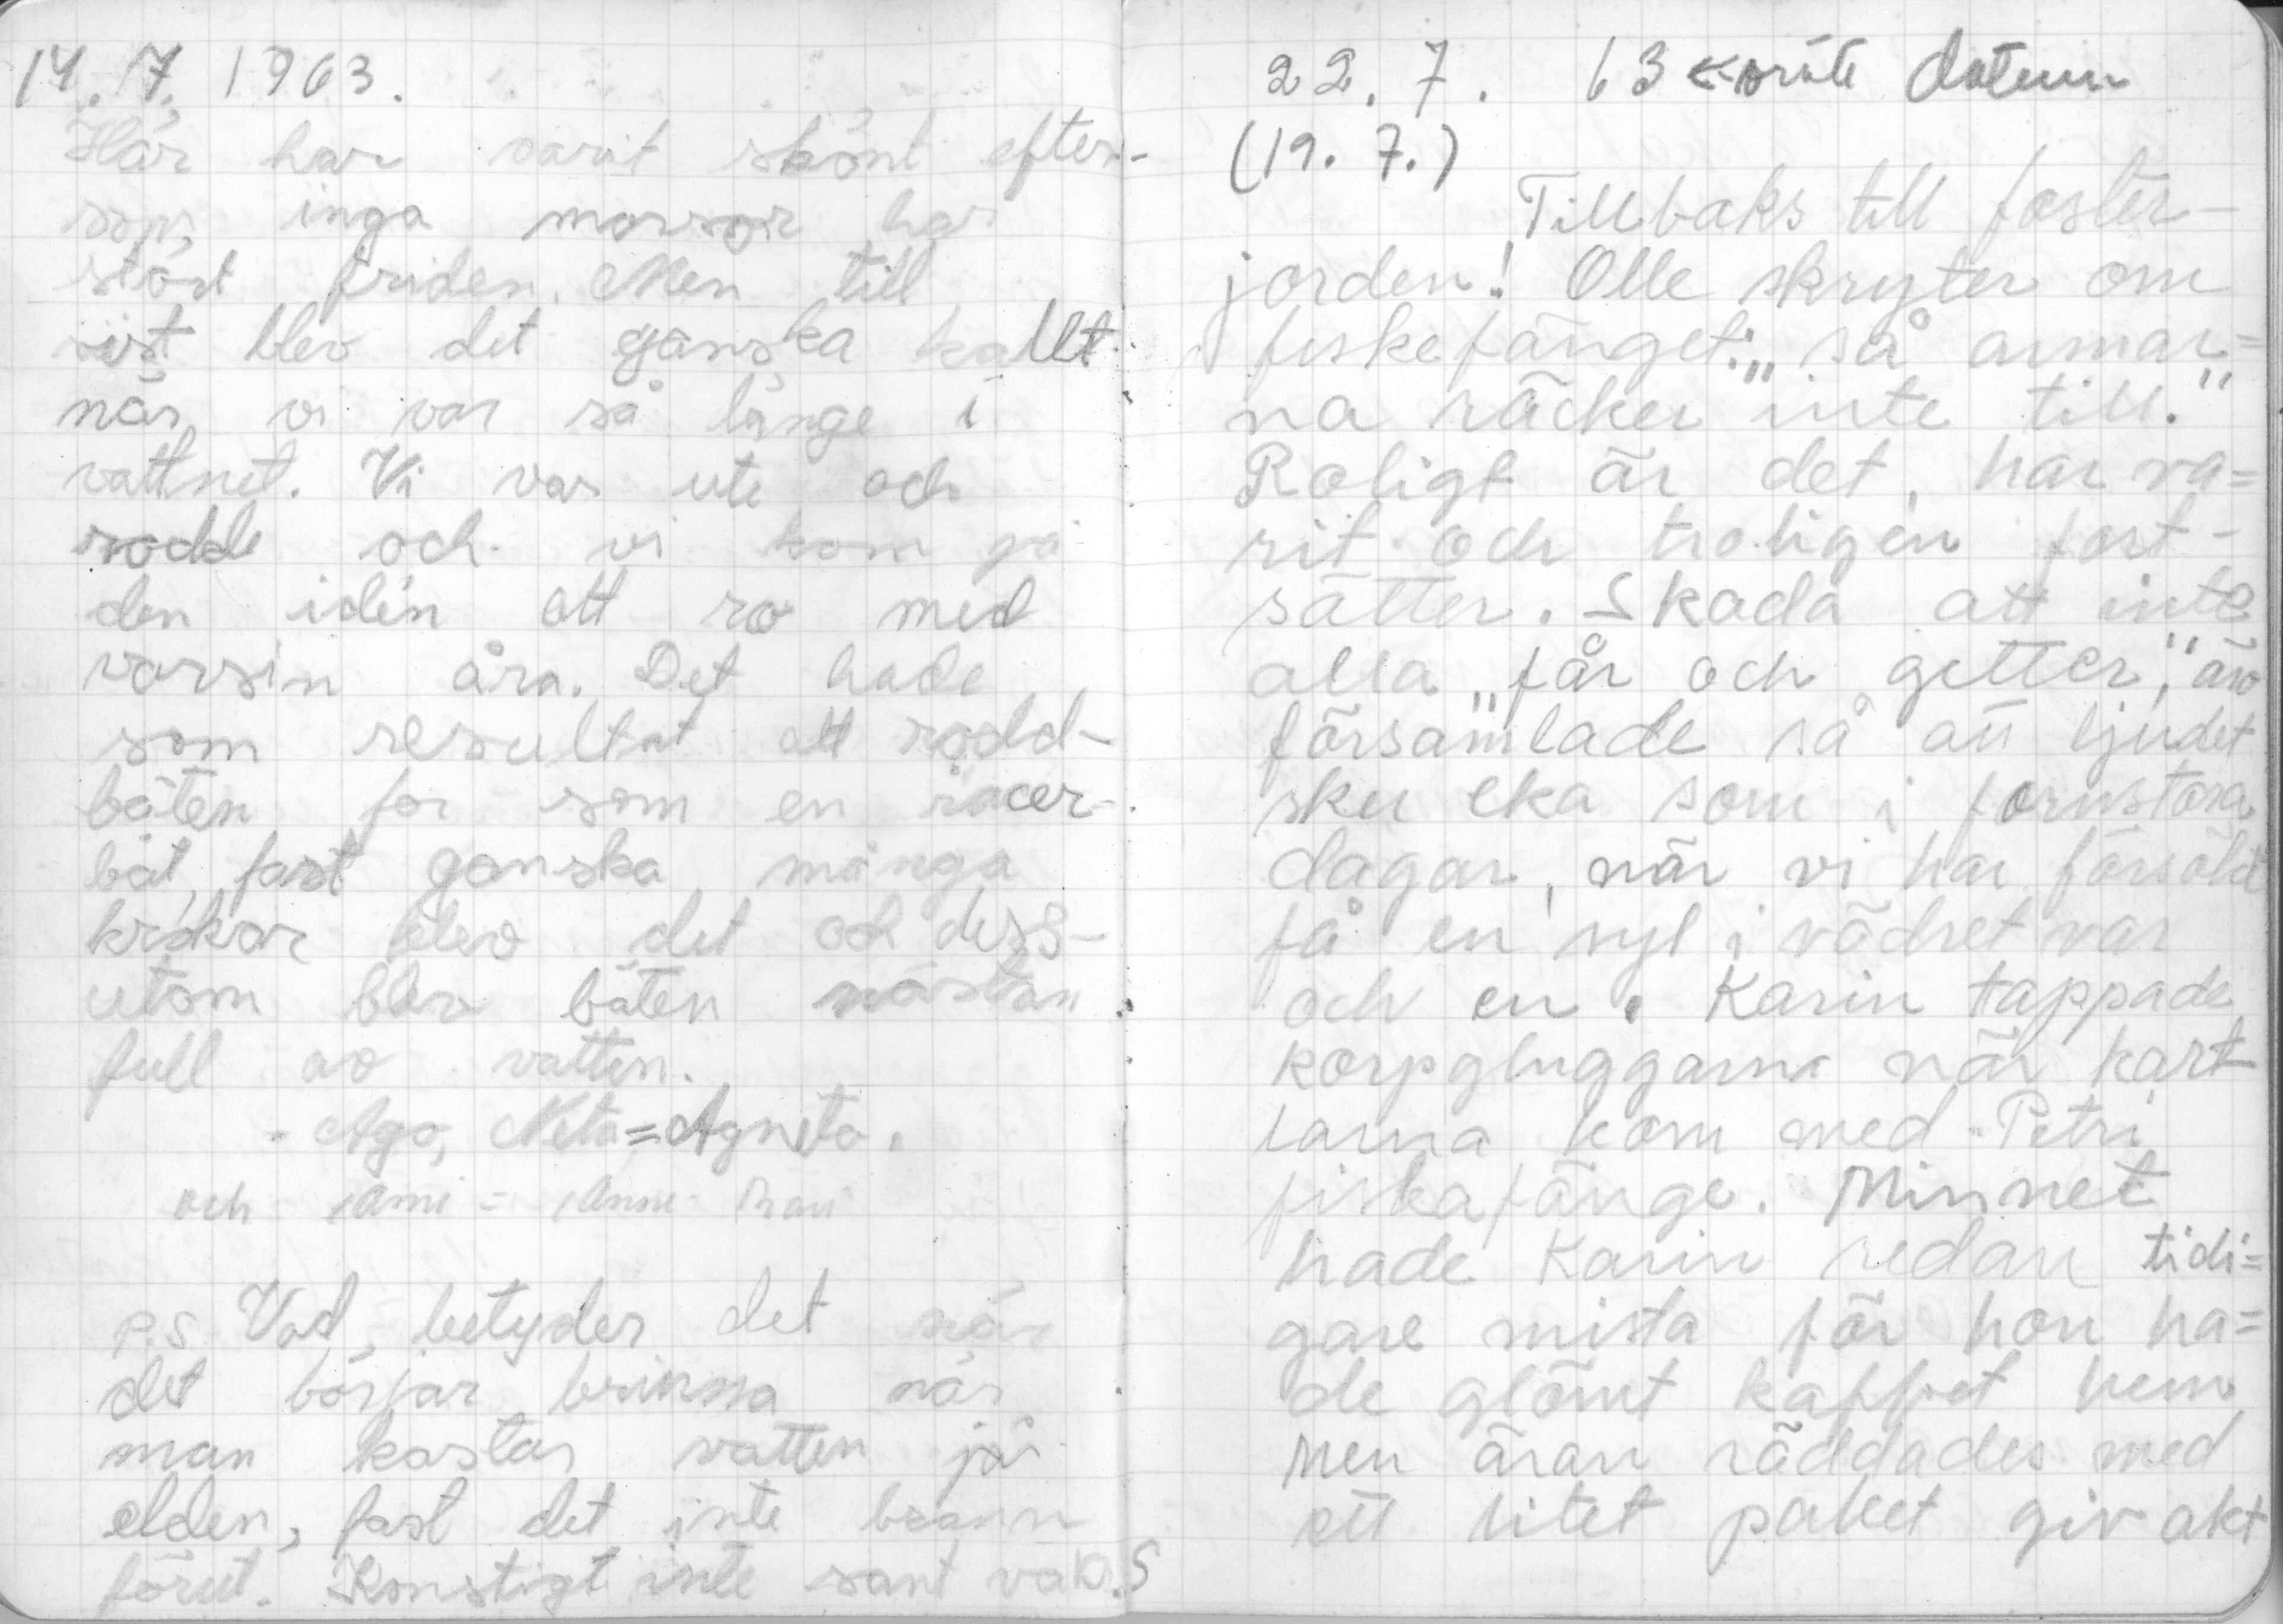 14. 7. 1963.
Här har varit skönt efter-
som inga morsor har
stört friden. Men till
sist blev det ganska kallt
när vi var så länge i
vattnet. Vi var ute och
rodde och vi kom på
den idén att ro med
varsin åra. Det hade
som resultat att rodd-
båten for som en racer-
båt, fast ganska många
krökar blev det och dess-
utom blev båten nästan
full av vatten.
- Aga, Neta = Agneta.
och Ami - Anne-Mari
P.S Vad betyder det när
det börjar brinna när
man kastar vatten på
elden, fast det inte brann
förut. Konstigt inte sant va D.S
22. 7. 63 ← datum
(19. 7.)
Tillbaks till foster-
jorden! Olle skryter om
fiskefänget: „så armar=
na räcker inte till."
Roligt är det, har va=
rit och troligen fort-
sätter. Skada att inte
alla „får och getter," äro
församlade så att ljudet
sku eka som i fornstora
dagar, när vi har försökt
få en syl i vädret var
och en. Karin tappade
korpgluggarna när kart
larna kom med Petri
fiskafänge. Minnet
hade Karin redan tidi=
gare mista för hon ha=
de glömt kaffet hem
men äran räddades med
ett litet paket giv akt